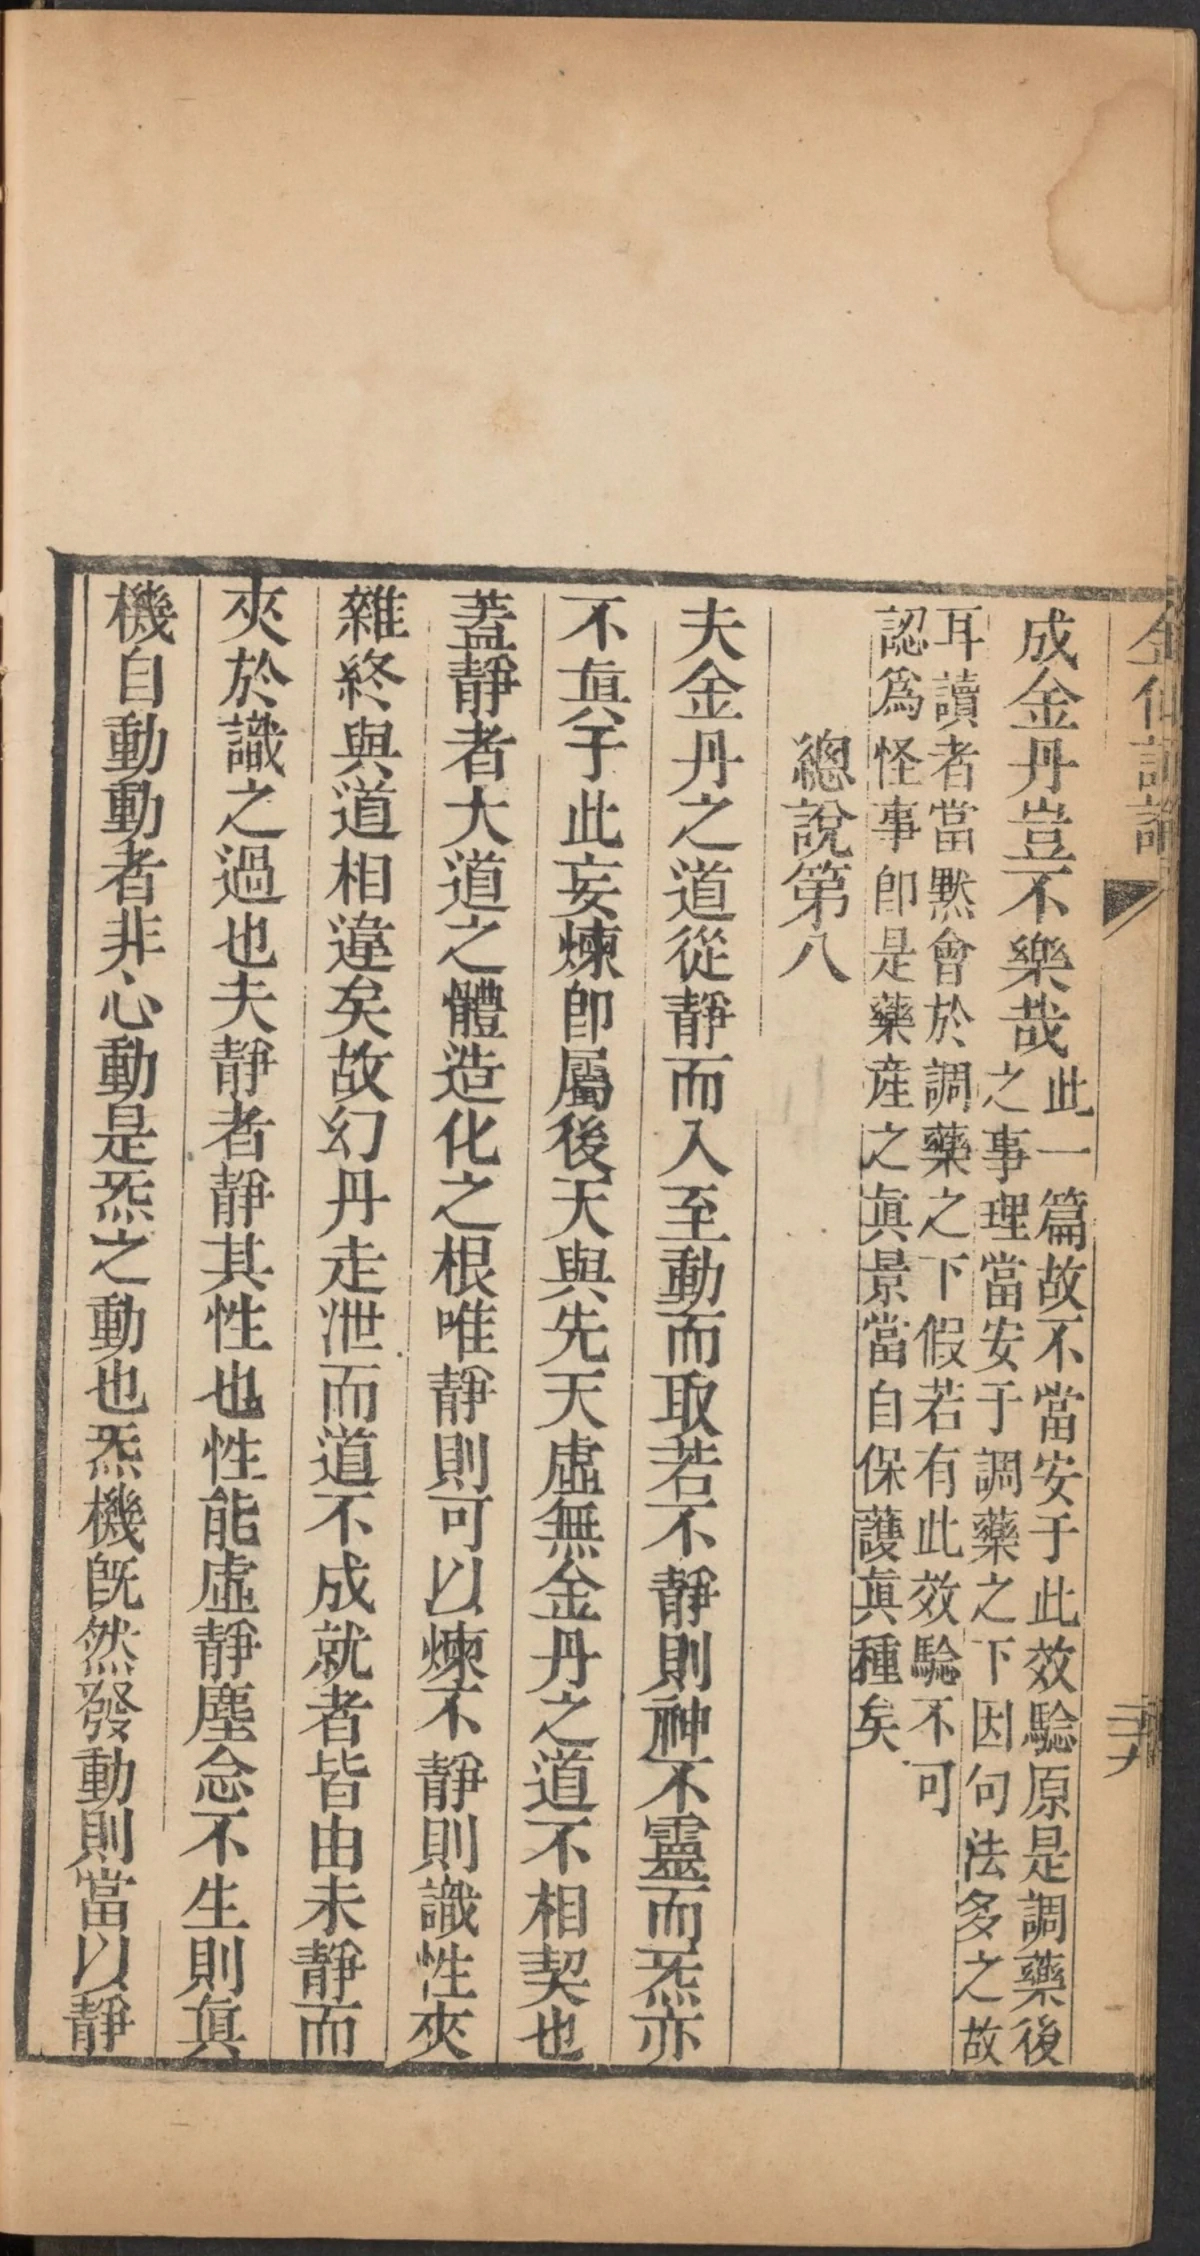 金仙證論
二十九
成金丹豈不樂哉
此一篇故不當安于此效驗原是調藥後
之事理當安于調藥之下因句法多之故
耳讀者當默會於調藥之下假若有此效驗不可
認爲怪事卽是藥産之眞景當自保護眞種矣
總說第八
夫金丹之道從靜而入至動而取若不靜則神不靈而炁亦
不眞于此妄煉卽屬後天與先天虛無金丹之道不相契也
蓋靜者大道之體造化之根唯靜則可以煉不靜則識性夾
雜終與道相違矣故幻丹走泄而道不成就者皆由未靜而
夾於識之過也夫靜者靜其性也性能虛靜塵念不生則眞
機自動動者非心動是炁之動也炁機旣然發動則當以靜